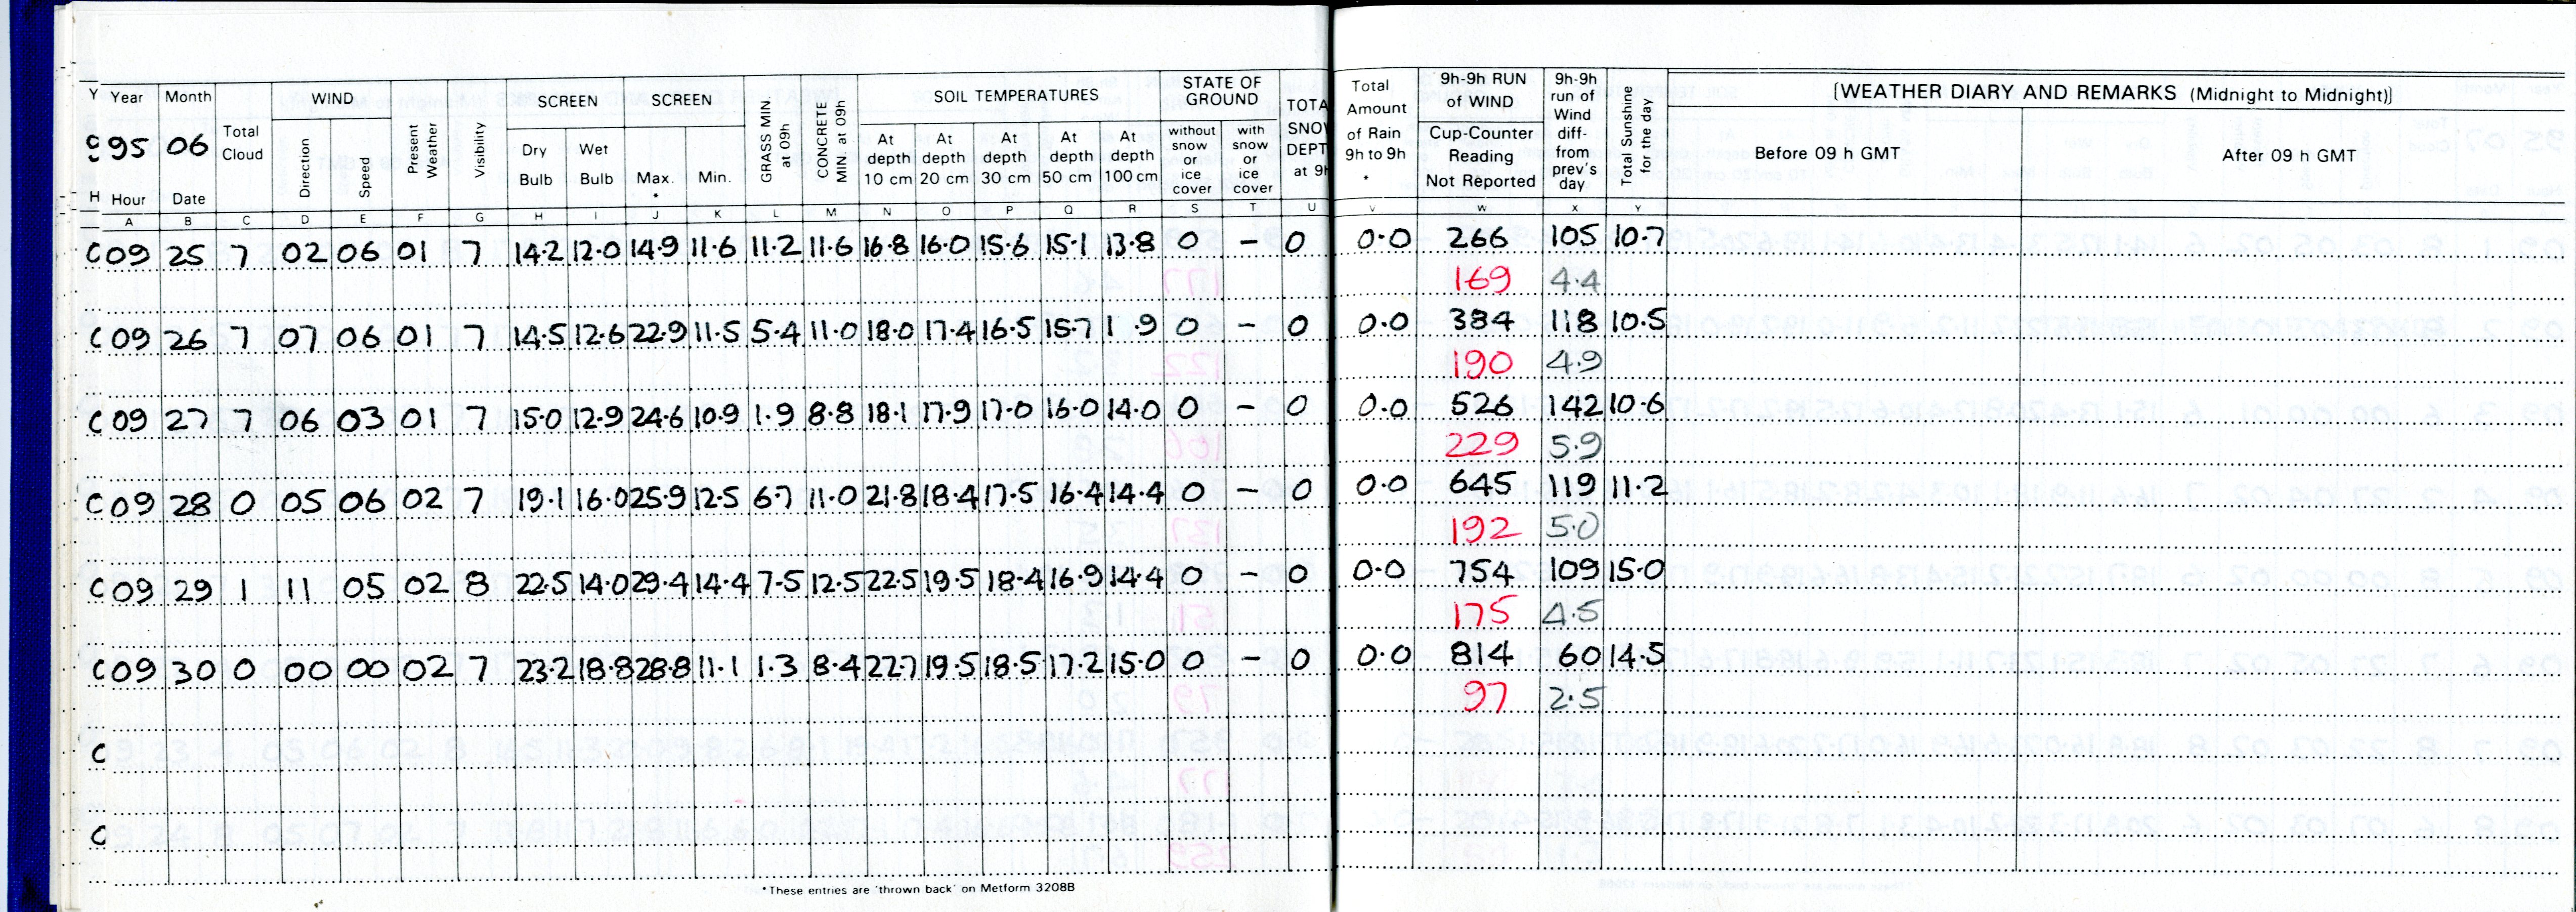 Y Year Month Total Cloud WIND Present Weather Visibility SCREEN SCREEN GRASS MIN. at 09h CONCRETE MIN. at 09h SOIL TEMPERATURES STATE OF GROUND TOTA SNOW DEPT at 9h Total Amount of Rain 9h to 9h * 9h-9h RUN of WIND 9h-9h run of Wind diff- from prev's day Total Sunshine for the day [WEATHER DIARY AND REMARKS (Midnight to Midnight)]
95 06 Direction Speed Dry Bulb Wet Bulb Max. * Min. At depth 10 cm At depth 20 cm At depth 30 cm At depth 50 cm At depth 100 cm without snow or ice cover with snow or ice cover Cup-Counter Reading Not Reported Before 09 h GMT After 09 h GMT
H Hour Date
A B C D E F G H I J K L M N O P Q R S T U V W X Y
C 09 25 7 02 06 01 7 14.2 12.0 14.9 11.6 11.2 11.6 16.8 16.0 15.6 15.1 13.8 0 – 0 0.0 266 105 10.7
169 4.4
C 09 26 7 07 06 01 7 14.5 12.6 22.9 11.5 5.4 11.0 18.0 17.4 16.5 15.7 1 .9 0 – 0 0.0 384 118 10.5
190 4.9
C 09 27 7 06 03 01 7 15.0 12.9 24.6 10.9 1.9 8.8 18.1 17.9 17.0 16.0 14.0 0 – 0 0.0 526 142 10.6
229 5.9
C 09 28 0 05 06 02 7 19.1 16.0 25.9 12.5 6.7 11.0 21.8 18.4 17.5 16.4 14.4 0 – 0 0.0 645 119 11.2
192 5.0
C 09 29 1 11 05 02 8 22.5 14.0 29.4 14.4 7.5 12.5 22.5 19.5 18.4 16.9 14.4 0 – 0 0.0 754 109 15.0
175 4.5
C 09 30 0 00 00 02 7 23.2 18.8 28.8 11.1 1.3 8.4 22.7 19.5 18.5 17.2 15.0 0 – 0 0.0 814 60 14.5
97 2.5
C
C
*These entries are 'thrown back' on Metform 3208B